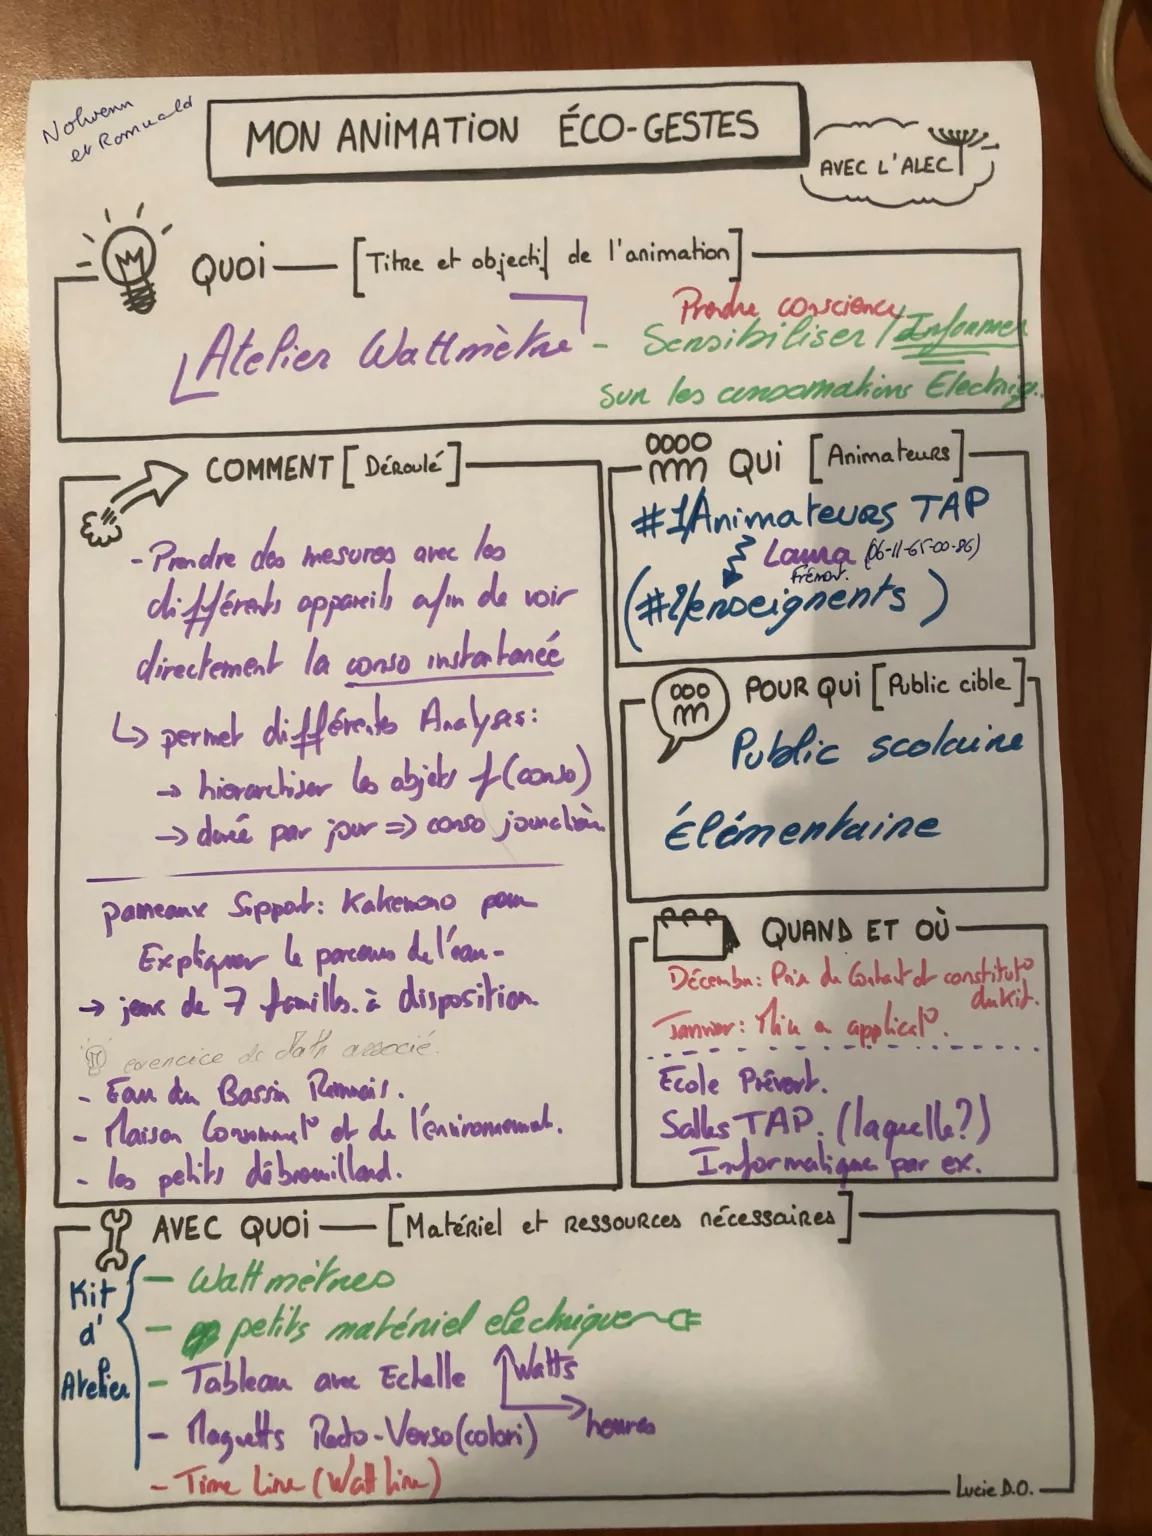 Nolwenn
et Romuald
MON ANIMATION ÉCO-GESTES
AVEC L'ALEC
QUOI [Titre et objectif de l'animation]
Prendre conscience
Atelier Wattmètre - Sensibiliser / Informer
sur les consomations Electriq.
COMMENT [Déroulé]
- Prendre des mesures avec les
différents appareils afin de voir
directement la conso instantanée
↳ permet différents Analyses:
→ hierarchiser les objets f(conso)
→ durée par jour => conso journalière
panneaux Support: Kakemono pour
Expliquer le parcours de l'eau-
→ jeux de 7 familles à disposition
exercice de Math associé.
- Eau du Bassin Rennais.
- Maison Consommat° et de l'environnement.
- les petits débrouillard.
QUI [Animateurs]
#1/Animateurs TAP
Laura (06-11-65-00-86)
Frémont.
(#2/enseignents)
POUR QUI [Public cible]
Public scolaire
Élémentaire
QUAND ET OÙ
Décembre: Prise de Contact et constitut°
du kit.
Janvier: Mise en applicat°.
Ecole Prévert.
Salles TAP. (laquelle?)
Informatique par ex.
AVEC QUOI [Matériel et ressources nécessaires]
Kit
d'
Atelier
- Wattmètres
- petits matériel electrique
- Tableau avec Echelle Watts
heures
- Maquetts Recto-Verso (colori)
- Time Line (Watt line)
Lucie D.O.